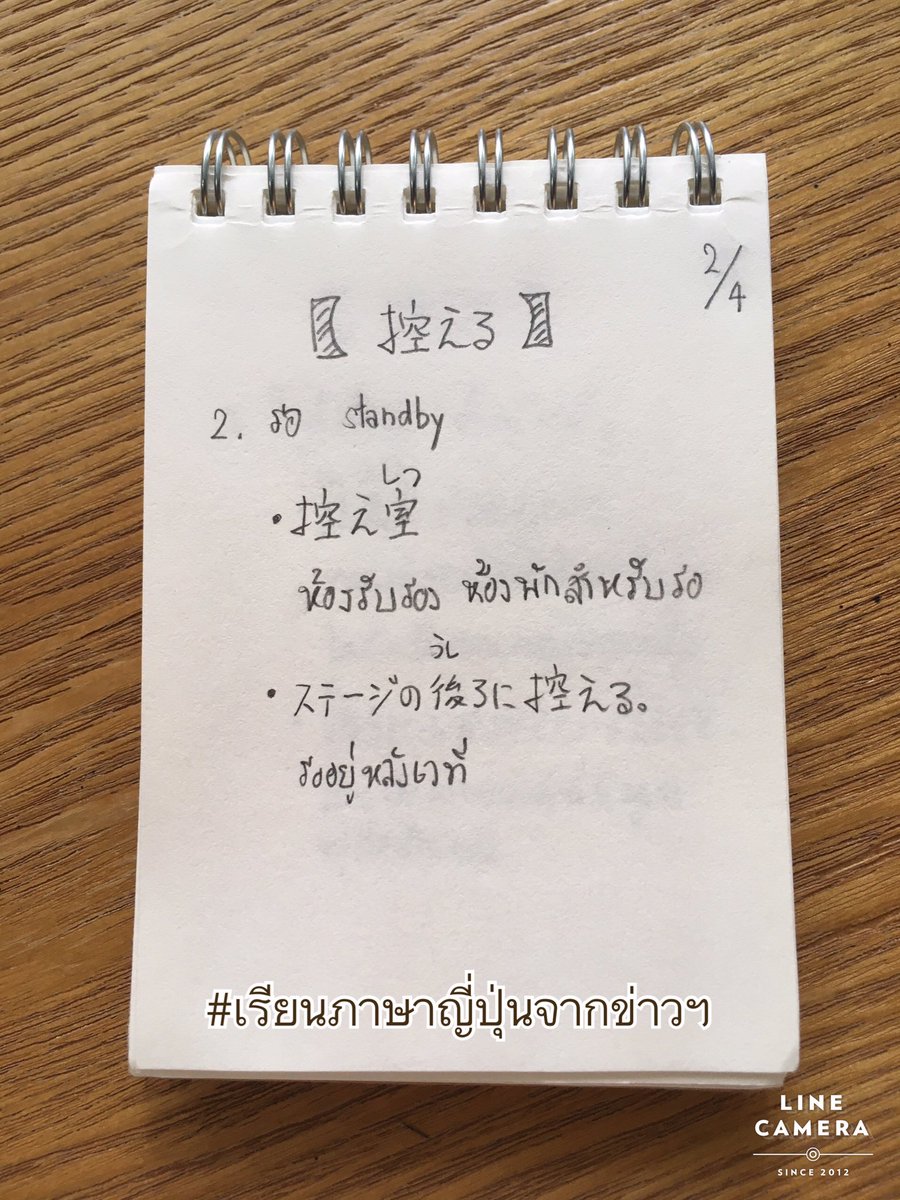 2/4
【 控える 】
2. รอ standby
しつ
・控え室
ห้องรับรอง ห้องพักสำหรับรอ
うし
・ステージの後ろに控える。
รออยู่หลังเวที
#เรียนภาษาญี่ปุ่นจากข่าวฯ
LINE
CAMERA
SINCE 2012